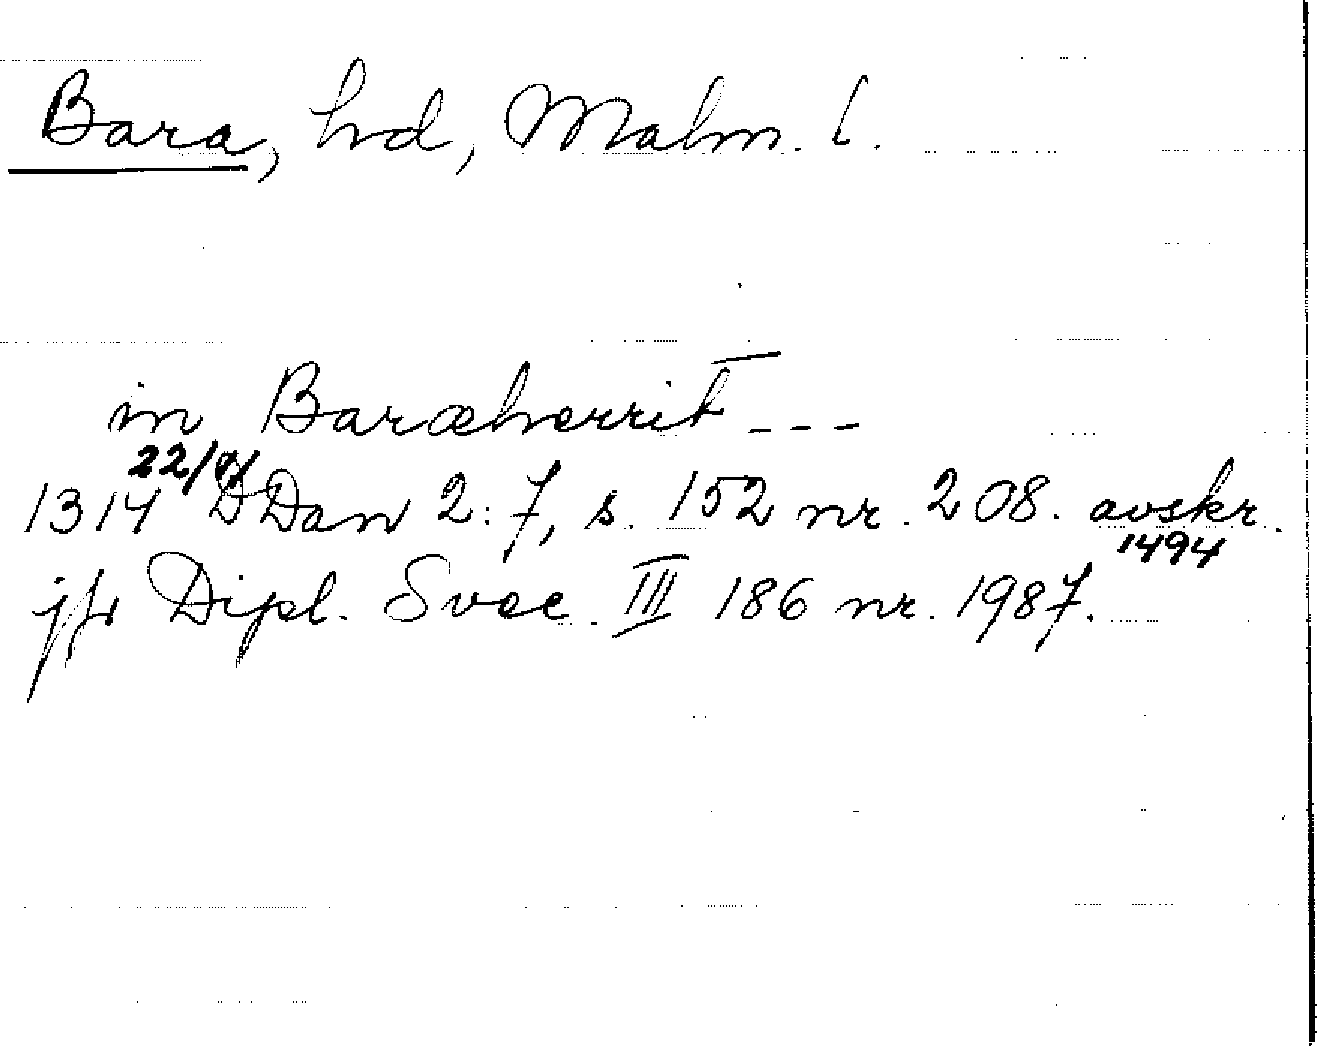 Bara, hd, Malm. l.
in Baræherrit ---
1314 22/ DDan 2:7, s. 152 nr. 208. avskr. 1494
jfr Dipl. Svec. III 186 nr. 1987.